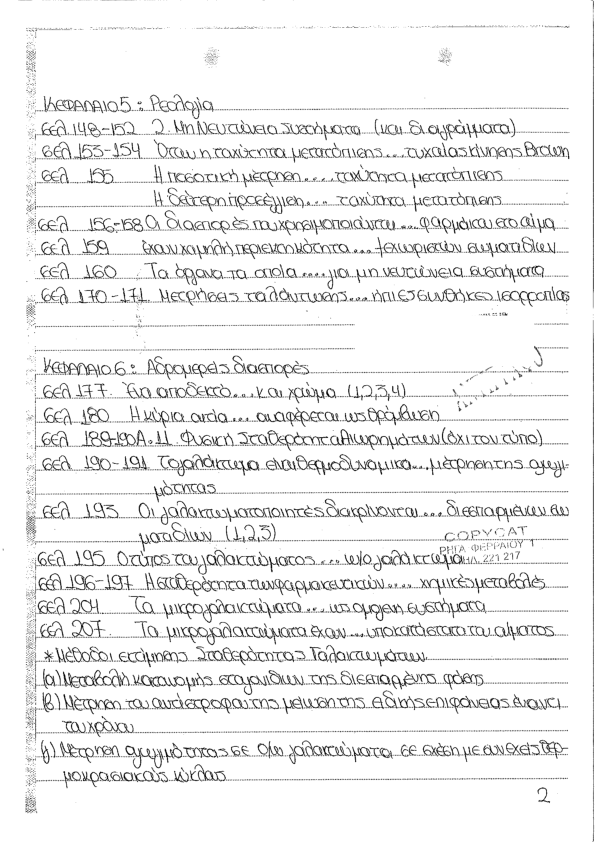 ΚΕΦΑΛΑΙΟ 5 : Ρεολογία
σελ 148-152 2. Μη Νευτώνεια Συστήματα (και διαγράμματα)
σελ 153-154 Όταν η ταχύτητα μετατόπισης.... τυχαίας κίνησης Brown
σελ 155 Η ποσοτική μέτρηση.... ταχύτητα μετατόπισης
Η δεύτερη προσέγγιση.... ταχύτητα μετατόπισης
σελ 156-158 Οι διασπορές που χρησιμοποιούνται.... φαρμάκου στο αίμα
σελ 159 έχουν χαμηλή περιεκτικότητα.... ξεχωριστών σωματιδίων
σελ 160 Τα όργανα τα οποία.... για μη νευτώνεια συστήματα
σελ 170-171. Μετρήσεις ταλάντωσης.... ήπιες συνθήκες ισορροπίας
ΚΕΦΑΛΑΙΟ 6 : Αδρομερείς διασπορές
σελ 177. Ένα αποδεκτό... και χρώμα (1,2,3,4)
σελ 180 Η κύρια αιτία... αναφέρεται ως θρόμβωση
σελ 189-190 Α.11. Φυσική Σταθερότητα Αιωρημάτων (όχι τον τύπο)
σελ 190-191 Το γαλάκτωμα είναι θερμοδυναμικα... μέτρηση της αγωγι-
μότητας
σελ 193 Οι γαλακτωματοποιητές διακρίνονται... διεσπαρμένων σω
ματιδίων (1,2,3)
COPYCAT
ΡΗΓΑ ΦΕΡΡΑΙΟΥ 1
ΤΗΛ. 221 217
σελ 195 Ο τύπος του γαλακτώματος.... w/o γαλάκτωμα
σελ 196-197 Η σταθερότητα των φαρμακευτικών.... χημικές μεταβολές
σελ 204. Τα μικρογαλακτώματα... ως ομογενή συστήματα
σελ 207. Τα μικρογαλακτώματα έχουν... υποκατάστατα του αίματος
* Μέθοδοι εκτίμησης Σταθερότητας Γαλακτωμάτων
(α) Μεταβολή κατανομής σταγονιδίων της διεσπαρμένης φάσης
(β) Μέτρηση του αντίστροφου της μείωσης της ειδικής επιφάνειας έναντι
του χρόνου
γ) Μέτρηση αγωγιμότητας σε ο/w γαλακτώματα σε σχέση με συνεχείς θερ-
μοκρασιακούς κύκλους
2